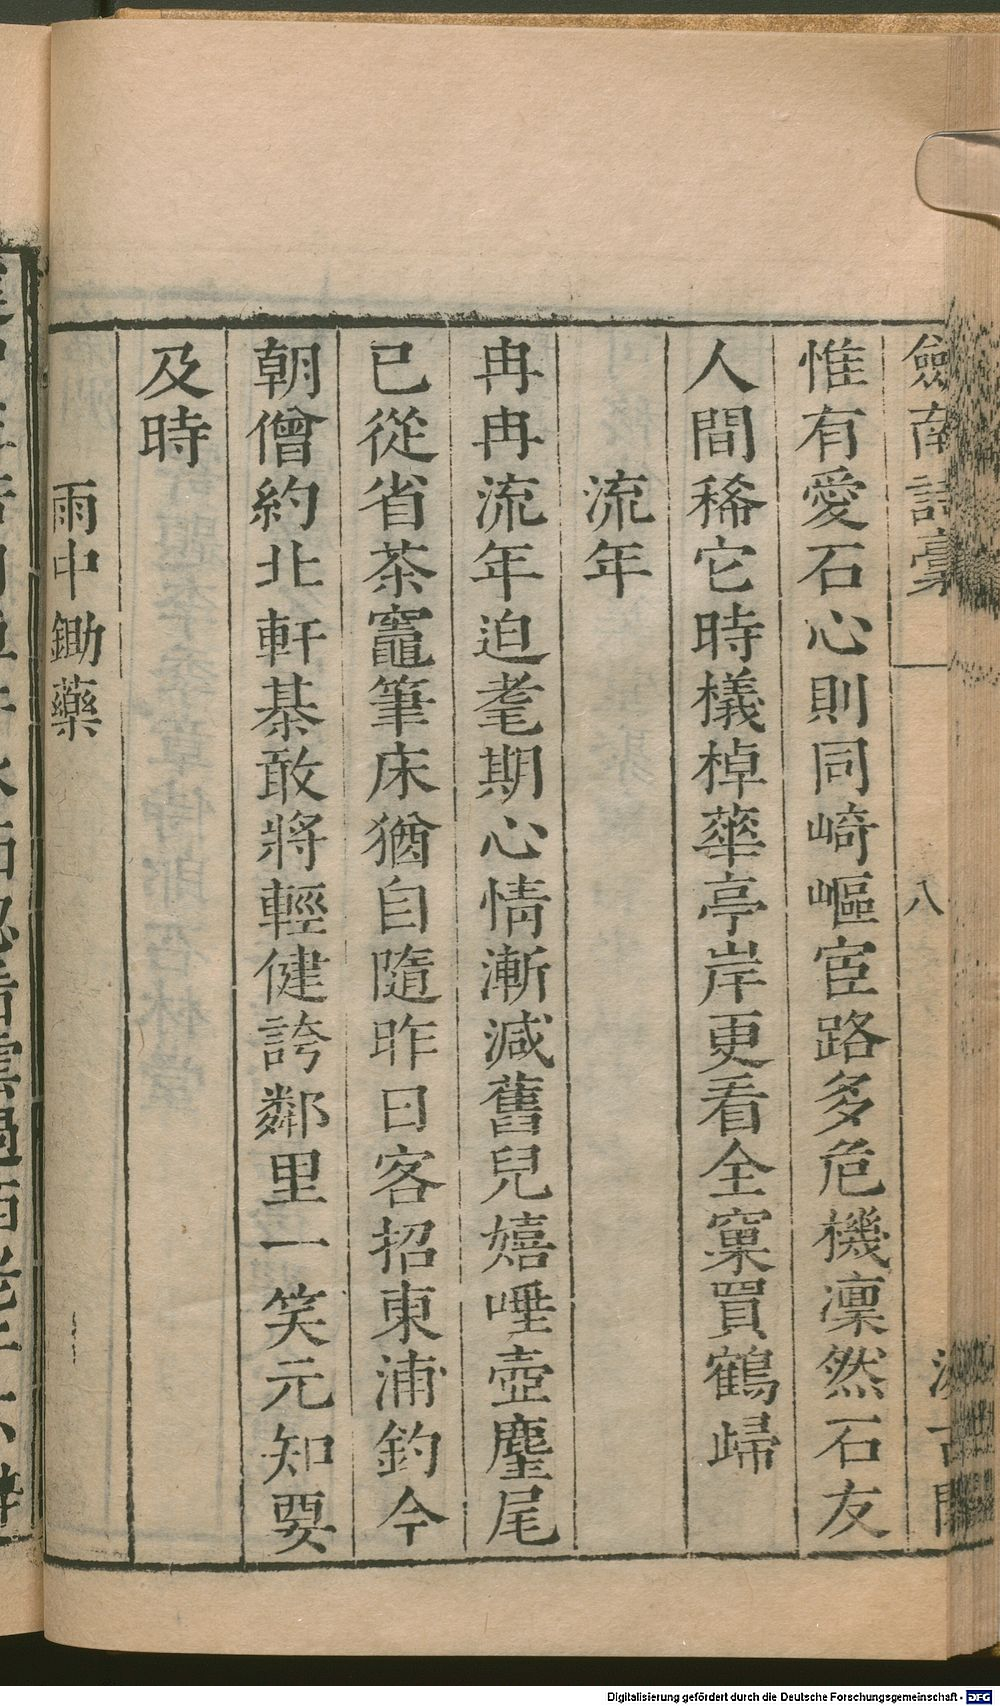 劒南詩稾
八
惟有愛石心則同崎嶇宦路多危機凜然石友
人間稀它時檥棹華亭岸更看全窠買鶴歸
流年
冉冉流年迫耄期心情漸減舊兒嬉唾壺麈尾
已從省茶竈筆床猶自隨昨日客招東浦釣今
朝僧約北軒棊敢將輕健誇鄰里一笑元知要
及時
雨中鋤藥
Digitalisierung gefördert durch die Deutsche Forschungsgemeinschaft - DFG